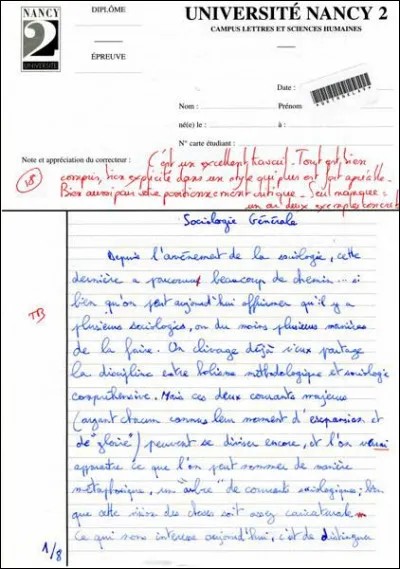 NANCY
2
UNIVERSITÉ
DIPLÔME
ÉPREUVE
UNIVERSITÉ NANCY 2
CAMPUS LETTRES ET SCIENCES HUMAINES
Date :
Nom :
Prénom
né(e) le :
à :
N° carte étudiant :
Note et appréciation du correcteur :
C'est un excellent travail. Tout est bien
compris, bien explicité dans un style qui plus est fort agréable.
Bien aussi pour votre positionnement critique. Seul manque :
un ou deux exemples concrets
18
TB
Sociologie Générale
Depuis l'avènement de la sociologie, cette
dernière a parcouru beaucoup de chemin... si
bien qu'on peut aujourd'hui affirmer qu'il y a
plusieurs sociologies, ou du moins plusieurs manières
de la faire. Un clivage déjà vieux partage
la discipline entre holisme méthodologique et sociologie
compréhensive. Mais ces deux courants majeurs
(ayant chacun connu leur moment d'expansion et
de "gloire") peuvent se diviser encore, et l'on
apparaître ce que l'on peut nommer de manière
métaphorique, un "arbre" de courants sociologiques ; bien
que cette vision des choses soit assez caricaturale
Ce qui nous intéresse aujourd'hui, c'est de distinguer
1/8